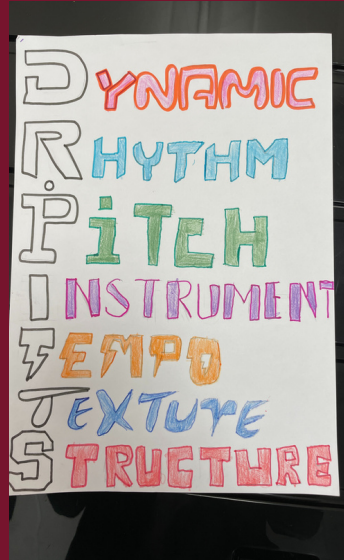 DYNAMIC
RHYTHM
PiTCH
INSTRUMENT
TEMPO
TEXTURE
STRUCTURE